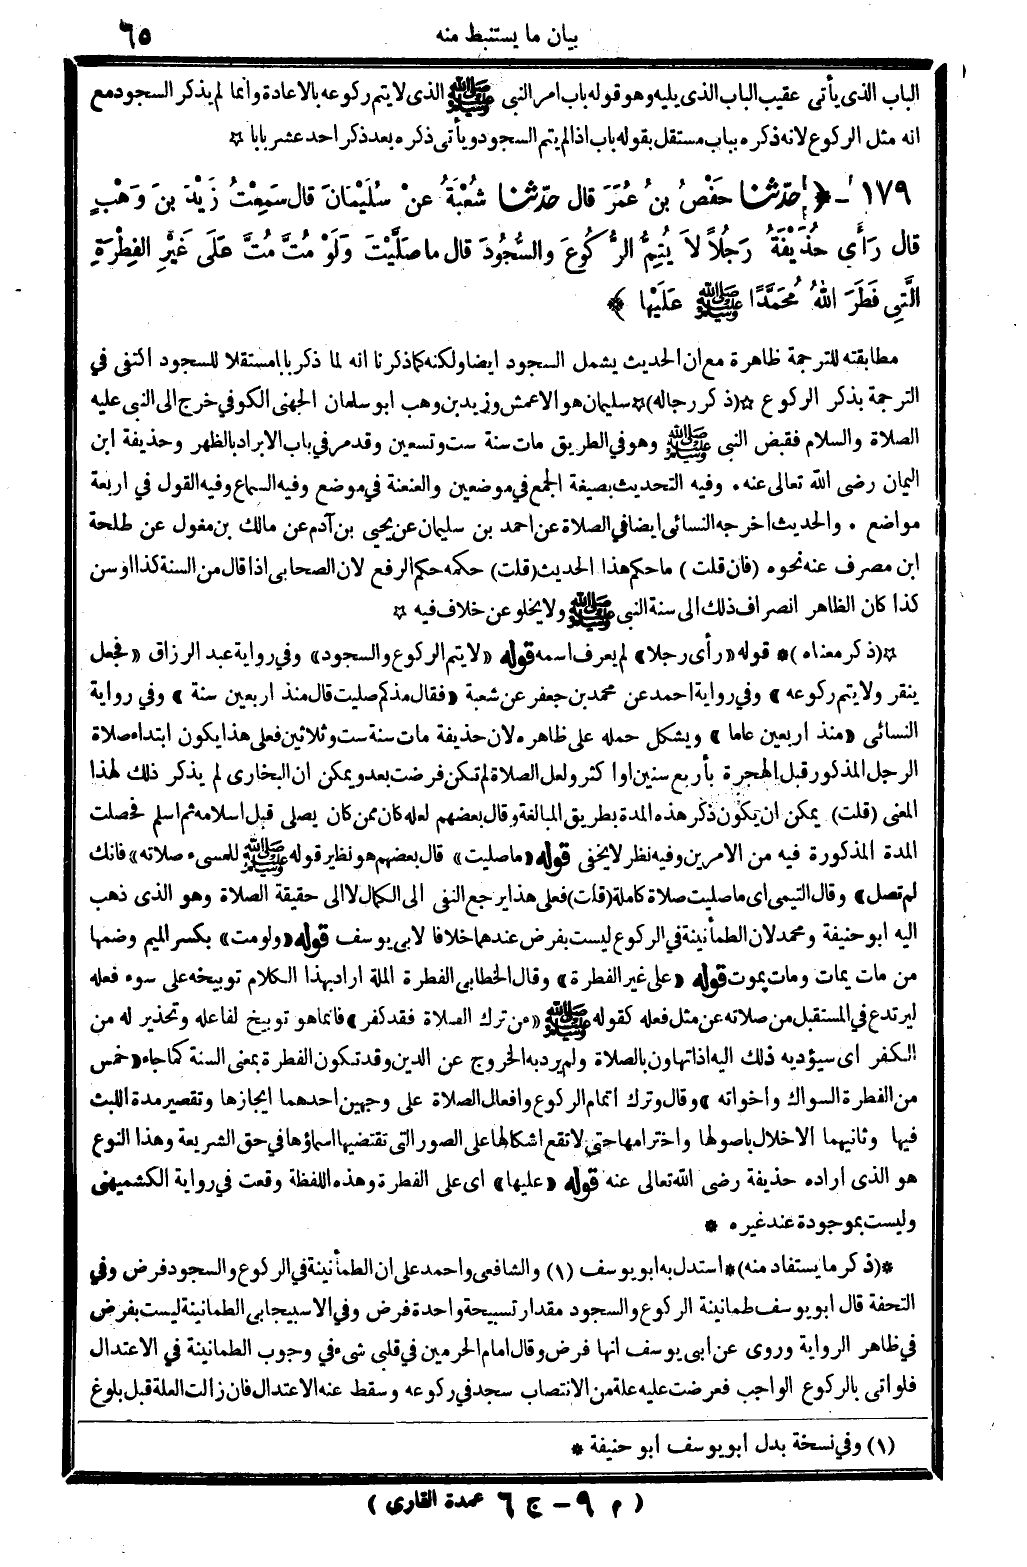 بيان ما يستنبط منه ٦٥
الباب الذى يأتى عقيب الباب الذى يليه وهو قوله باب امر النبى ﷺ الذى لا يتم ركوعه بالاعادة وانما لم يذكر السجود مع
انه مثل الركوع لانه ذكره بباب مستقل بقوله باب اذا لم يتم السجود ويأتى ذكره بعد ذكر احد عشر بابا ☆
١٧٩ - ﴿ حَدّثنا حَفْصُ بنُ عُمَرَ قال حَدّثنا شُعْبَةُ عنْ سُلَيْمَانَ قال سَمِعْتُ زَيْدَ بنَ وَهْبٍ
قال رَأَي حُذَيْفَةُ رَجُلاً لاَ يُتِمُّ الرُّكُوعَ والسُّجُودَ قال ما صلَّيْتَ وَلَوْ مُتَّ مُتَّ عَلَى غَيْرِ الفِطْرَةِ
الَّتِي فَطَرَ اللهُ مُحَمَّدًا ﷺ عَلَيْها ﴾
مطابقته للترجمة ظاهرة مع ان الحديث يشمل السجود ايضا ولكنه كما ذكرنا انه لما ذكر بابا مستقلا للسجود اكتفى في
الترجمة بذكر الركوع ☆ (ذكر رجاله) ☆ سليمان هو الاعمش وزيد بن وهب ابو سلمان الجهنى الكوفي خرج الى النبى عليه
الصلاة والسلام فقبض النبى ﷺ وهو في الطريق مات سنة ست وتسعين وقد مر في باب الابراد بالظهر وحذيفة ابن
اليمان رضى الله تعالى عنه . وفيه التحديث بصيغة الجمع في موضعين والعنعنة في موضع وفيه السماع وفيه القول في اربعة
مواضع . والحديث اخرجه النسائى ايضا في الصلاة عن احمد بن سليمان عن يحيى بن آدم عن مالك بن مغول عن طلحة
ابن مصرف عنه نحوه (فان قلت) ما حكم هذا الحديث (قلت) حكمه حكم الرفع لان الصحابى اذا قال من السنة كذا او سن
كذا كان الظاهر انصراف ذلك الى سنة النبى ﷺ ولا يخلو عن خلاف فيه ☆
☆ (ذكر معناه) * قوله «رأى رجلا» لم يعرف اسمه قوله «لا يتم الركوع والسجود» وفي رواية عبد الرزاق «فجعل
ينقر ولا يتم ركوعه» وفي رواية احمد عن محمد بن جعفر عن شعبة «فقال مذكم صليت قال منذ اربعين سنة» وفي رواية
النسائى «منذ اربعين عاما» ويشكل حمله على ظاهره لان حذيفة مات سنة ست وثلاثين فعلى هذا يكون ابتداء صلاة
الرجل المذكور قبل الهجرة بأربع سنين او اكثر ولعل الصلاة لم تكن فرضت بعد ويمكن ان البخارى لم يذكر ذلك لهذا
المعنى (قلت) يمكن ان يكون ذكر هذه المدة بطريق المبالغة وقال بعضهم لعله كان ممن كان يصلى قبل اسلامه ثم اسلم فحصلت
المدة المذكورة فيه من الامرين وفيه نظر لا يخفى قوله «ما صليت» قال بعضهم هو نظير قوله ﷺ للمسىء صلاته «فانك
لم تصل» وقال التيمى اى ما صليت صلاة كاملة (قلت) فعلى هذا يرجع النفى الى الكمال لا الى حقيقة الصلاة وهو الذى ذهب
اليه ابو حنيفة ومحمد لان الطمأنينة في الركوع ليست بفرض عندهما خلافا لابى يوسف قوله «ولو مت» بكسر الميم وضمها
من مات يمات ومات يموت قوله «على غير الفطرة» وقال الخطابى الفطرة الملة اراد بهذا الكلام توبيخه على سوء فعله
ليرتدع في المستقبل من صلاته عن مثل فعله كقوله ﷺ «من ترك الصلاة فقد كفر» فانما هو توبيخ لفاعله وتحذير له من
الكفر اى سيؤديه ذلك اليه اذا تهاون بالصلاة ولم يرد به الخروج عن الدين وقد تكون الفطرة بمعنى السنة كما جاء «خمس
من الفطرة السواك واخواته» وقال وترك اتمام الركوع وافعال الصلاة على وجهين احدهما ايجازها وتقصير مدة اللبث
فيها وثانيهما الاخلال باصولها واخترامها حتى لا تقع اشكالها على الصور التى تقتضيها اسماؤها في حق الشريعة وهذا النوع
هو الذى اراده حذيفة رضى الله تعالى عنه قوله «عليها» اى على الفطرة وهذه اللفظة وقعت في رواية الكشميهنى
وليست بموجودة عند غيره *
* (ذكر ما يستفاد منه) * استدل به ابو يوسف (١) والشافعى واحمد على ان الطمأنينة في الركوع والسجود فرض وفي
التحفة قال ابو يوسف طمانينة الركوع والسجود مقدار تسبيحة واحدة فرض وفي الاسبيجابى الطمانينة ليست بفرض
في ظاهر الرواية وروى عن ابى يوسف انها فرض وقال امام الحرمين في قلبى شىء في وجوب الطمانينة في الاعتدال
فلو اتى بالركوع الواجب فعرضت عليه علة من الانتصاب سجد في ركوعه وسقط عنه الاعتدال فان زالت العلة قبل بلوغ
(١) وفي نسخة بدل ابو يوسف ابو حنيفة *
( م ٩ - ج ٦ عمدة القاري )